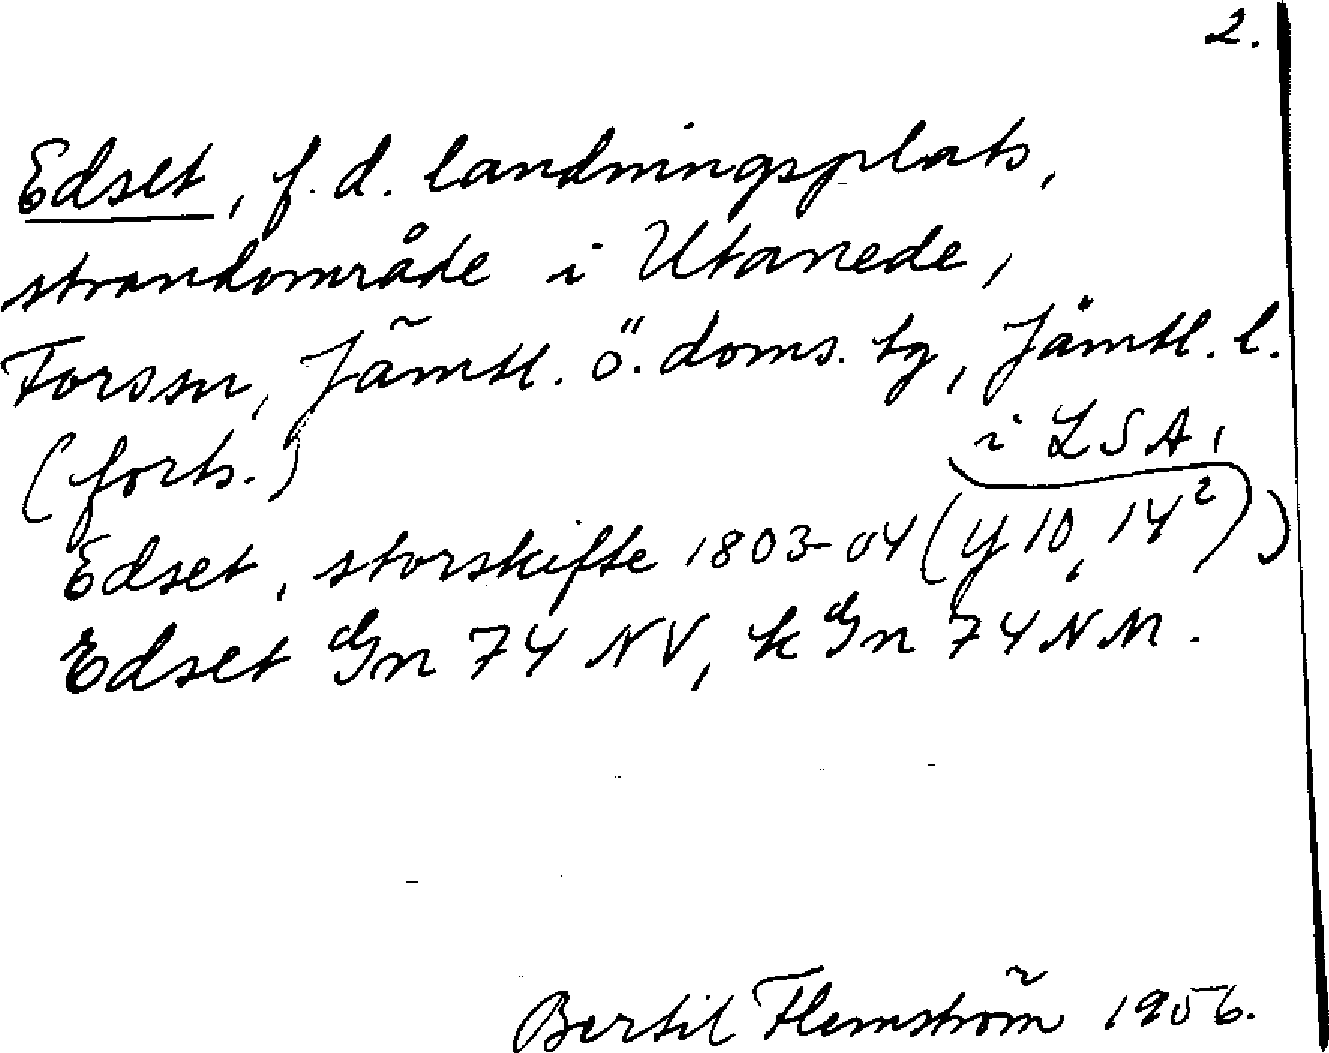 2.
Edset, f.d. landningsplats,
strandområde i Utanede,
Forssn, Jämtl. ö. doms. tg, Jämtl. l.
(forts.)
i LSA,
Edset, storskifte 1803-04 (Y10, 14²))
Edset Gn 74 NV, k Gn 74 NM.
Bertil Flemström 1956.